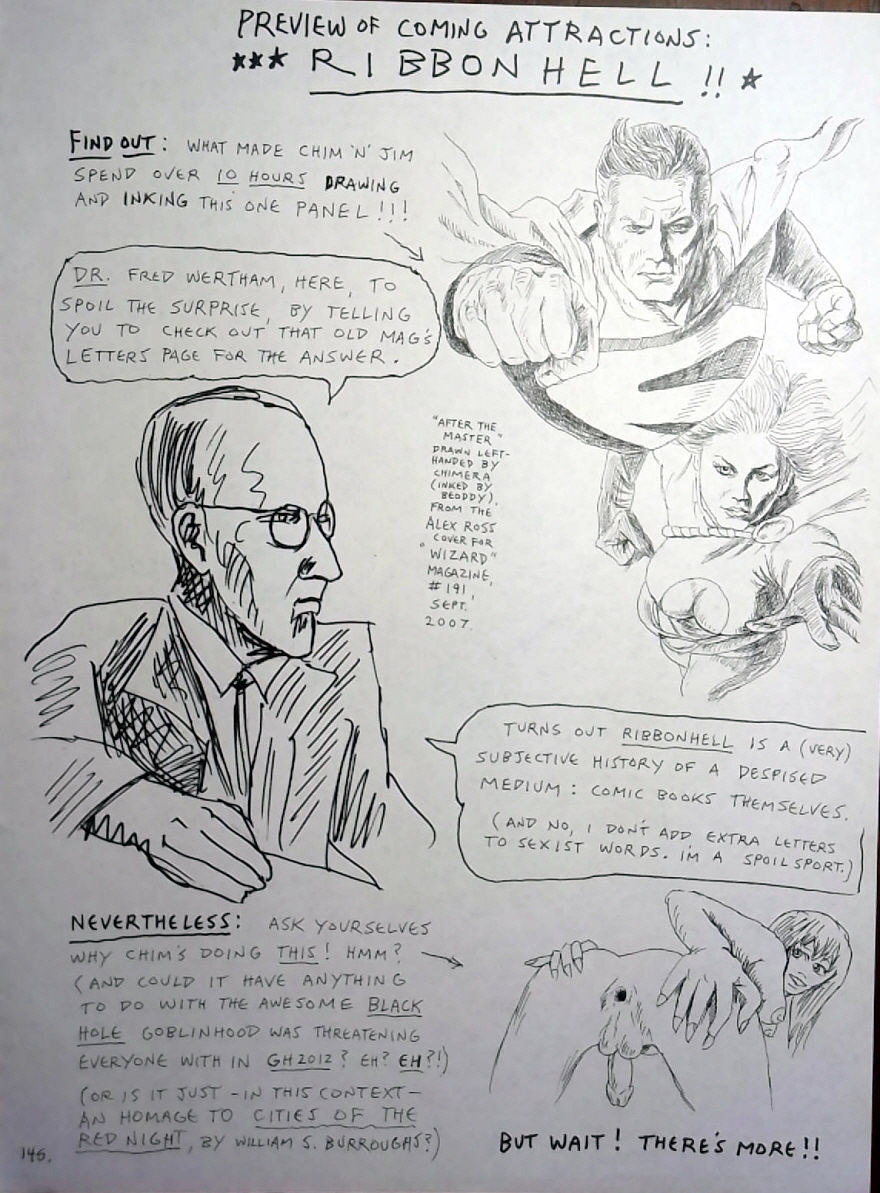 PREVIEW OF COMING ATTRACTIONS:
*** RIBBONHELL !! *
FIND OUT: WHAT MADE CHIM 'N' JIM
SPEND OVER 10 HOURS DRAWING
AND INKING THIS ONE PANEL!!!
DR. FRED WERTHAM, HERE, TO
SPOIL THE SURPRISE, BY TELLING
YOU TO CHECK OUT THAT OLD MAG'S
LETTERS PAGE FOR THE ANSWER.
"AFTER THE
MASTER"
DRAWN LEFT-
HANDED BY
CHIMERA
(INKED BY
BEODDY),
FROM THE
ALEX ROSS
COVER FOR
"WIZARD"
MAGAZINE,
#191,
SEPT.
2007.
TURNS OUT RIBBONHELL IS A (VERY)
SUBJECTIVE HISTORY OF A DESPISED
MEDIUM: COMIC BOOKS THEMSELVES.
(AND NO, I DON'T ADD EXTRA LETTERS
TO SEXIST WORDS. I'M A SPOILSPORT.)
NEVERTHELESS: ASK YOURSELVES
WHY CHIM'S DOING THIS! HMM?
(AND COULD IT HAVE ANYTHING
TO DO WITH THE AWESOME BLACK
HOLE GOBLINHOOD WAS THREATENING
EVERYONE WITH IN GH2012? EH? EH?!)
(OR IS IT JUST -IN THIS CONTEXT-
AN HOMAGE TO CITIES OF THE
RED NIGHT, BY WILLIAM S. BURROUGHS?)
BUT WAIT! THERE'S MORE!!
145.